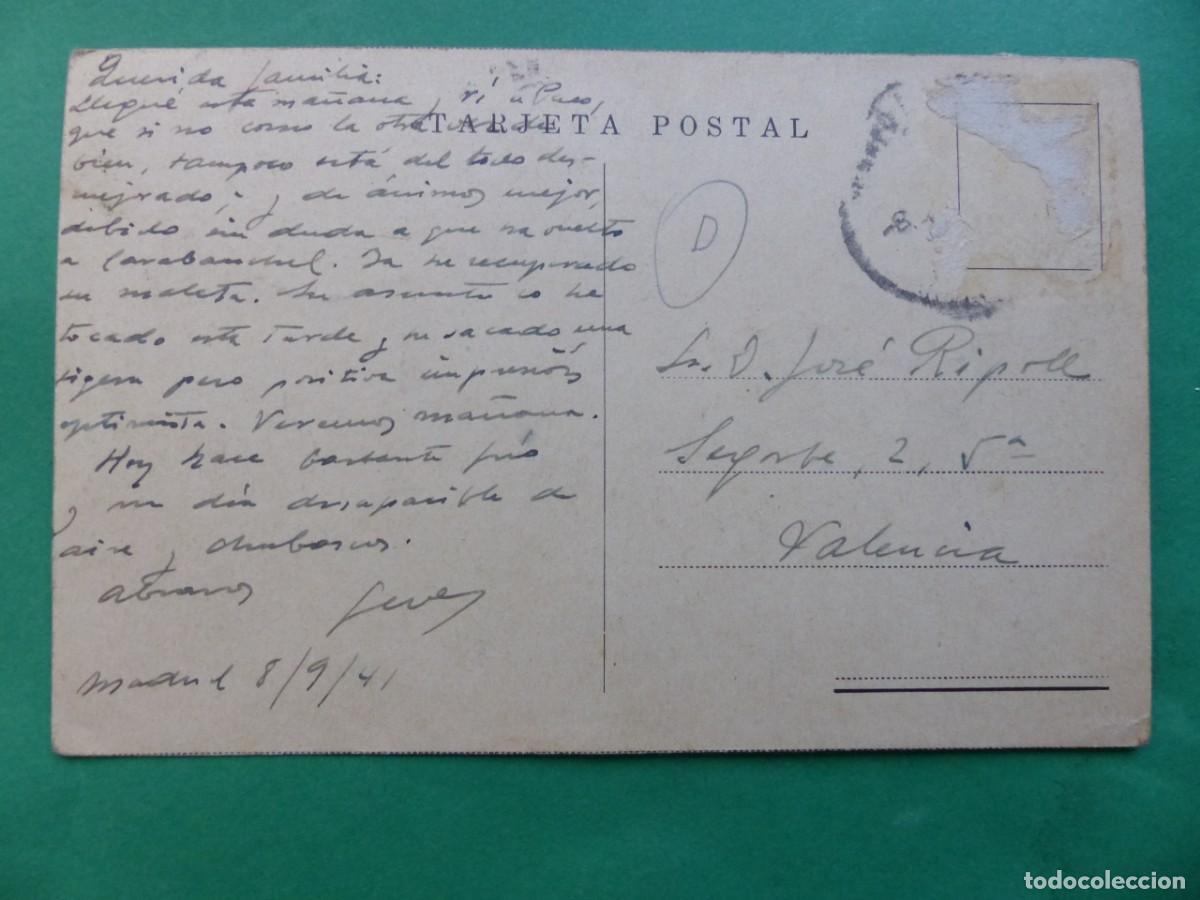 Querida familia:
Llegué esta mañana y ví a Paco,
que si no como la otra
bien, tampoco está del todo des-
mejorado; y de ánimos mejor,
debido sin duda a que ha vuelto
a Carabanchel. Ya he recuperado
su maleta. Su asunto lo he
tocado esta tarde y he sacado una
ligera pero positiva impresión
optimista. Veremos mañana.
Hoy hace bastante frío
y un día desapacible de
aire y chubascos.
abrazos
Madrid 8/9/41
TARJETA POSTAL
D
Sr. D. José Ripoll
Segorbe, 2, 5ª
Valencia
todocoleccion